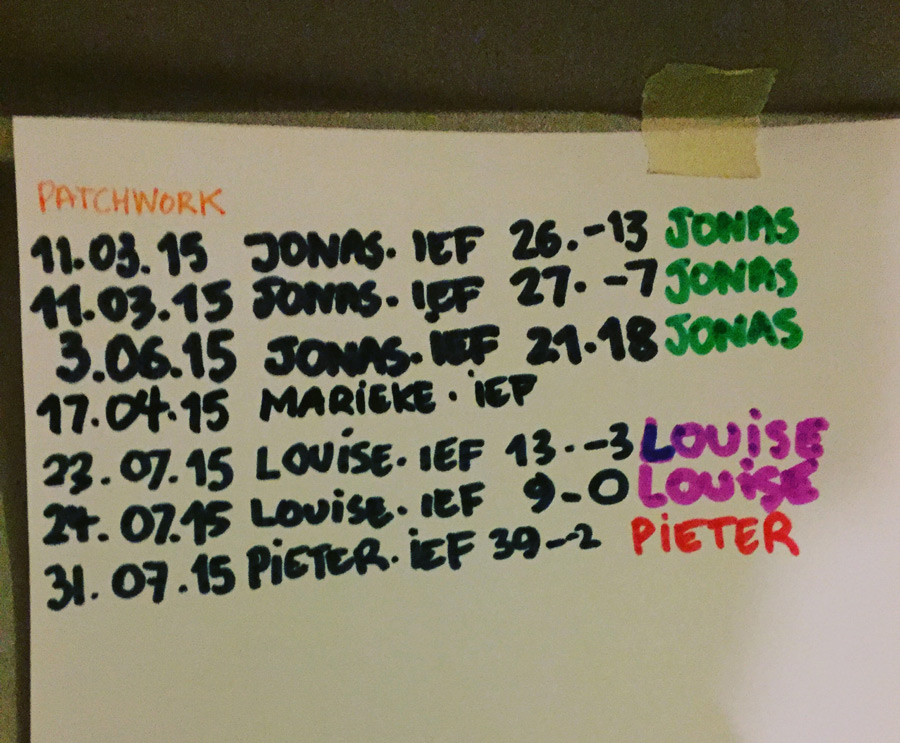 PATCHWORK
11.03.15 JONAS. IEF 26.-13 JONAS
11.03.15 JONAS. IEF 27.-7 JONAS
3.06.15 JONAS. IEF 21.18 JONAS
17.04.15 MARIEKE. IEF
23.07.15 LOUISE. IEF 13.-3 LOUISE
24.07.15 LOUISE. IEF 9-0 LOUISE
31.07.15 PIETER. IEF 39--2 PIETER